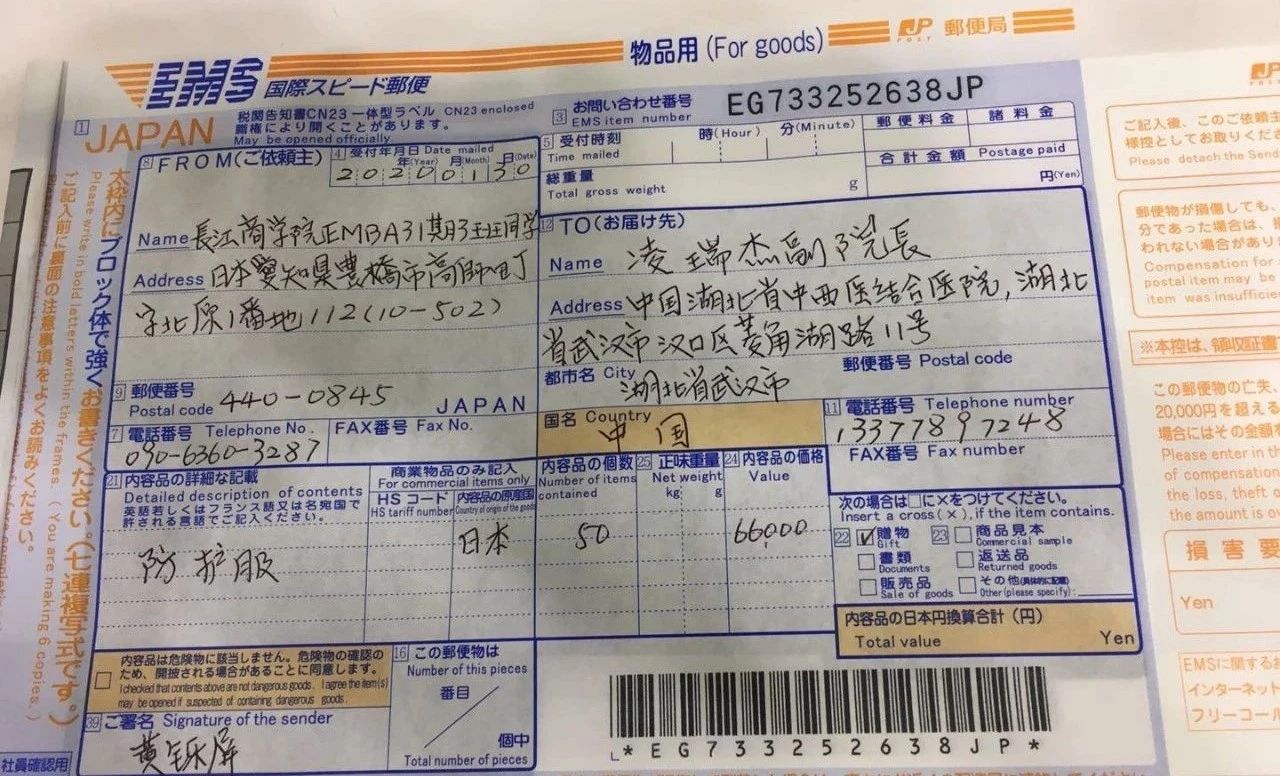 物品用 (For goods)
JP POST 郵便局
EMS 国際スピード郵便
税関告知書CN23 一体型ラベル CN23 enclosed
職権により開くことがあります。
May be opened officially
1 JAPAN
3 お問い合わせ番号
EMS item number
EG733252638JP
8 FROM (ご依頼主)
4 受付年月日 Date mailed
年(Year) 月(Month) 日(Date)
20200130
5 受付時刻
Time mailed
時(Hour) 分(Minute)
郵便料金 諸料金
合計金額 Postage paid
円(Yen)
総重量
Total gross weight g
Name 長江商学院EMBA31期3班同学
Address 日本愛知県豊橋市高師町
字北原1番地112(10-502)
9 郵便番号
Postal code 440-0845 JAPAN
7 電話番号 Telephone No.
090-6360-3287
FAX番号 Fax No.
12 TO (お届け先)
Name 凌瑞杰副院長
Address 中国湖北省中西医结合医院,湖北
省武汉市汉口区菱角湖路11号
都市名 City
湖北省武汉市
郵便番号 Postal code
国名 Country
中国
11 電話番号 Telephone number
13377897248
FAX番号 Fax number
21 内容品の詳細な記載
Detailed description of contents
英語若しくはフランス語又は名宛国で
許される言語でご記入ください。
商業物品のみ記入
For commercial items only
HS コード
HS tariff number
内容品の原産国
Country of origin of the goods
内容品の個数
Number of items
contained
25 正味重量
Net weight
kg g
24 内容品の価格
Value
防护服 日本 50 66000
次の場合は□に×をつけてください。
Insert a cross (×), if the item contains.
22 贈物
Gift
書類
Documents
販売品
Sale of goods
23 商品見本
Commercial sample
返送品
Returned goods
その他(具体的に記載)
Other(please specify):
内容品の日本円換算合計 (円)
Total value Yen
内容品は危険物に該当しません。危険物の確認の
ため、開披される場合があることに同意します。
I checked that contents above are not dangerous goods. I agree the item(s)
may be opened if suspected of containing dangerous goods.
16 この郵便物は
Number of this pieces
番目
個中
Total number of pieces
39 ご署名 Signature of the sender
*EG733252638JP*
社員確認用
太枠内にブロック体で強くお書きください。(七連複写式です。)
Please write in bold letters within the frames. (You are making 6 copies.)
ご記入前に裏面の注意事項をよくお読みください。
ご記入後、このご依頼主
様控としてお取りくだ
Please detach the Send
郵便物が損傷しても、
分であった場合は、
われない場合があり
Compensation for
postal item may be
item was insufficie
※本控は、領収証書
この郵便物の亡失、
20,000円を超える
場合にはその金額を
Please enter in th
of compensation
the loss, theft o
the amount is o
損害要
Yen
EMSに関するお
インターネット
フリーコール